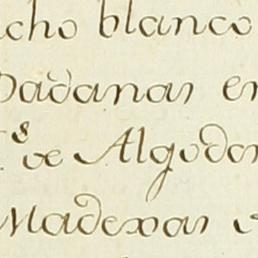 cho blanco
Badanas en
s de Algodon
Madexas